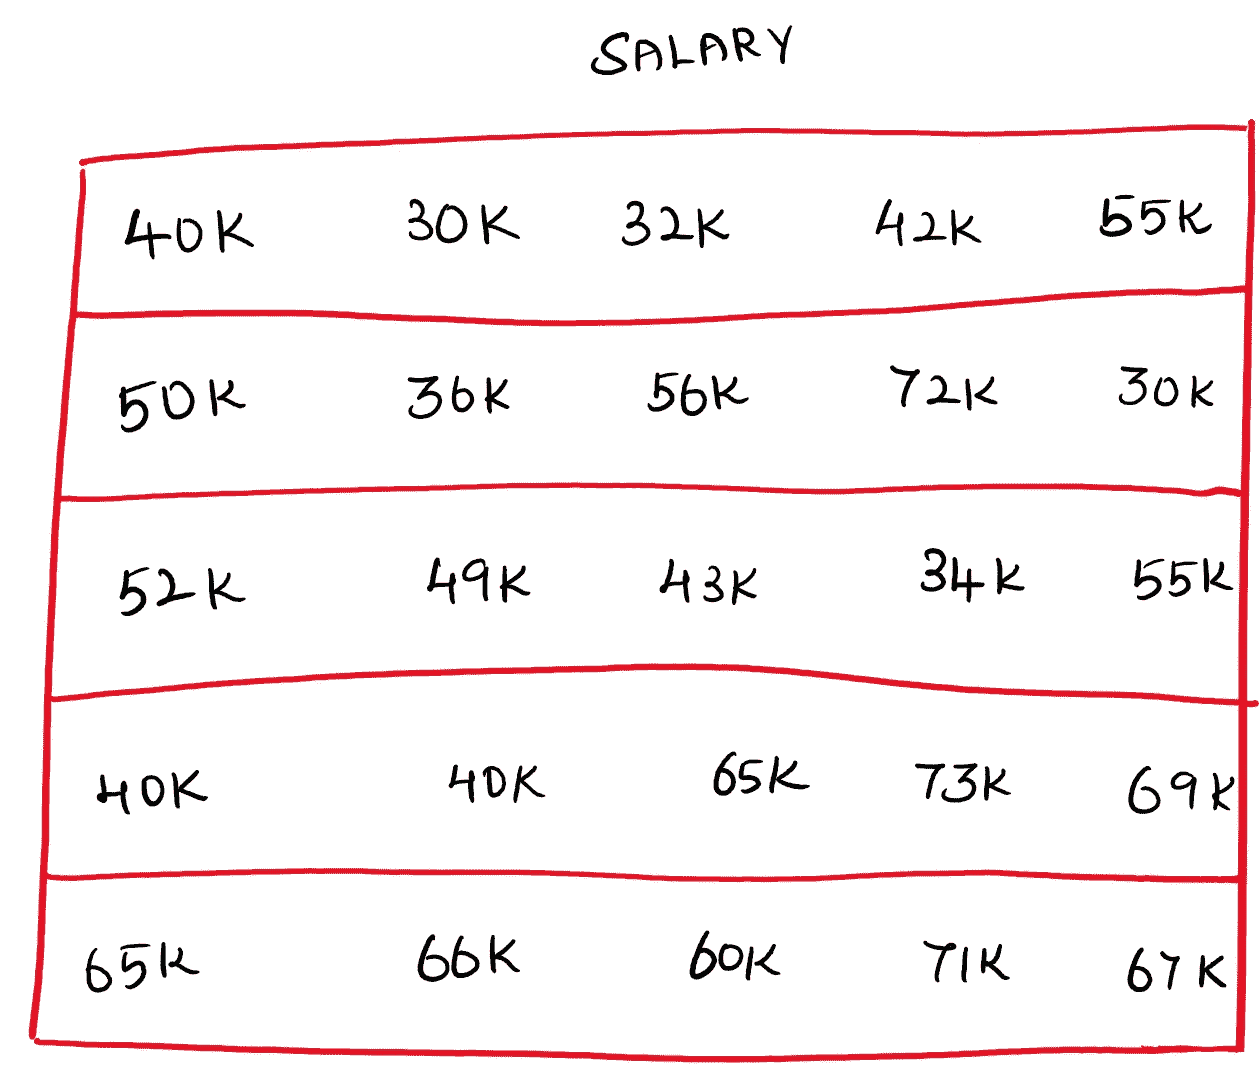 SALARY
40K 30K 32K 42K 55K
50K 36K 56K 72K 30K
52K 49K 43K 34K 55K
40K 40K 65K 73K 69K
65K 66K 60K 71K 67K